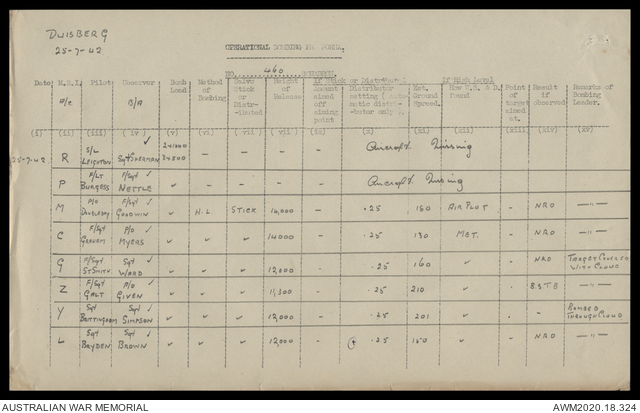 DUISBERG
25-7-42
OPERATIONAL BOMBING PRO FORMA.
NO. 460 SQUADRON.
Date M.&I. Pilot Observer Bomb Load Method of Bombing Salvo Stick or Distributed Height of Release If Stick or Distributed If High Level Point of target aimed at. Result if observed Remarks of Bombing Leader.
A/c B/A Amount aimed off aiming point Distributor setting (automatic distributor only). Met. Ground Speed. How W.S. & D. found
(i) (ii) (iii) (iv) (v) (vi) (vii) (vii) (ix) (x) (xi) (xii) (xiii) (xiv) (xv)
25-7-42 R S/L LEIGHTON Sgt SHERMAN ✓ - - - - Aircraft Missing
P F/Lt BURGESS F/Sgt NETTLE ✓ ✓ - - - - Aircraft Missing
M P/O F/Sgt GOODWIN ✓ ✓ H.L. STICK 14,000 - .25 160 AIR PLOT ✓ NRO —"—
C F/Sgt P/O MYERS ✓ ✓ ✓ ✓ 14000 - .25 130 MET. ✓ NRO —"—
G F/Sgt ST SMITH Sgt WARD ✓ ✓ ✓ ✓ 12,000 - .25 160 ✓ ✓ NRO TARGET COVERED WITH CLOUD
Z F/Sgt GALT P/O GIVEN ✓ ✓ ✓ ✓ 11,500 - .25 210 ✓ ✓ —"—
Y Sgt Sgt SIMPSON ✓ ✓ ✓ ✓ 12,000 - .25 201 ✓ - - BOMBED THROUGH CLOUD
L Sgt BRYDEN Sgt BROWN ✓ ✓ ✓ ✓ 12,000 - .25 150 ✓ ✓ NRO —"—
AUSTRALIAN WAR MEMORIAL
AWM2020.18.324